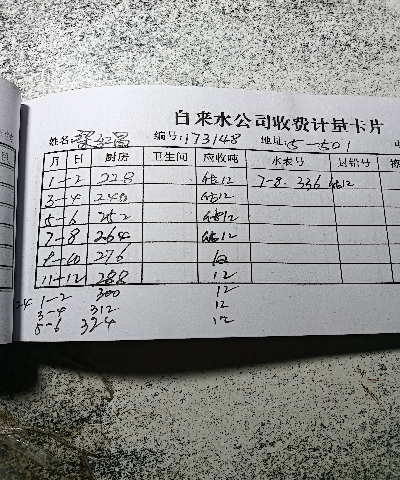 自来水公司收费计量卡片
姓名: 编号:173148 地址:5-501
月 日 厨房 卫生间 应收吨 水表号 划铅号
1-2 228 估12 7-8. 336 估12
3-4 240 估12
5-6 252 估12
7-8 264 估12
9-10 276 12
11-12 288 12
24 1-2 300 12
3-4 312 12
5-6 324 12